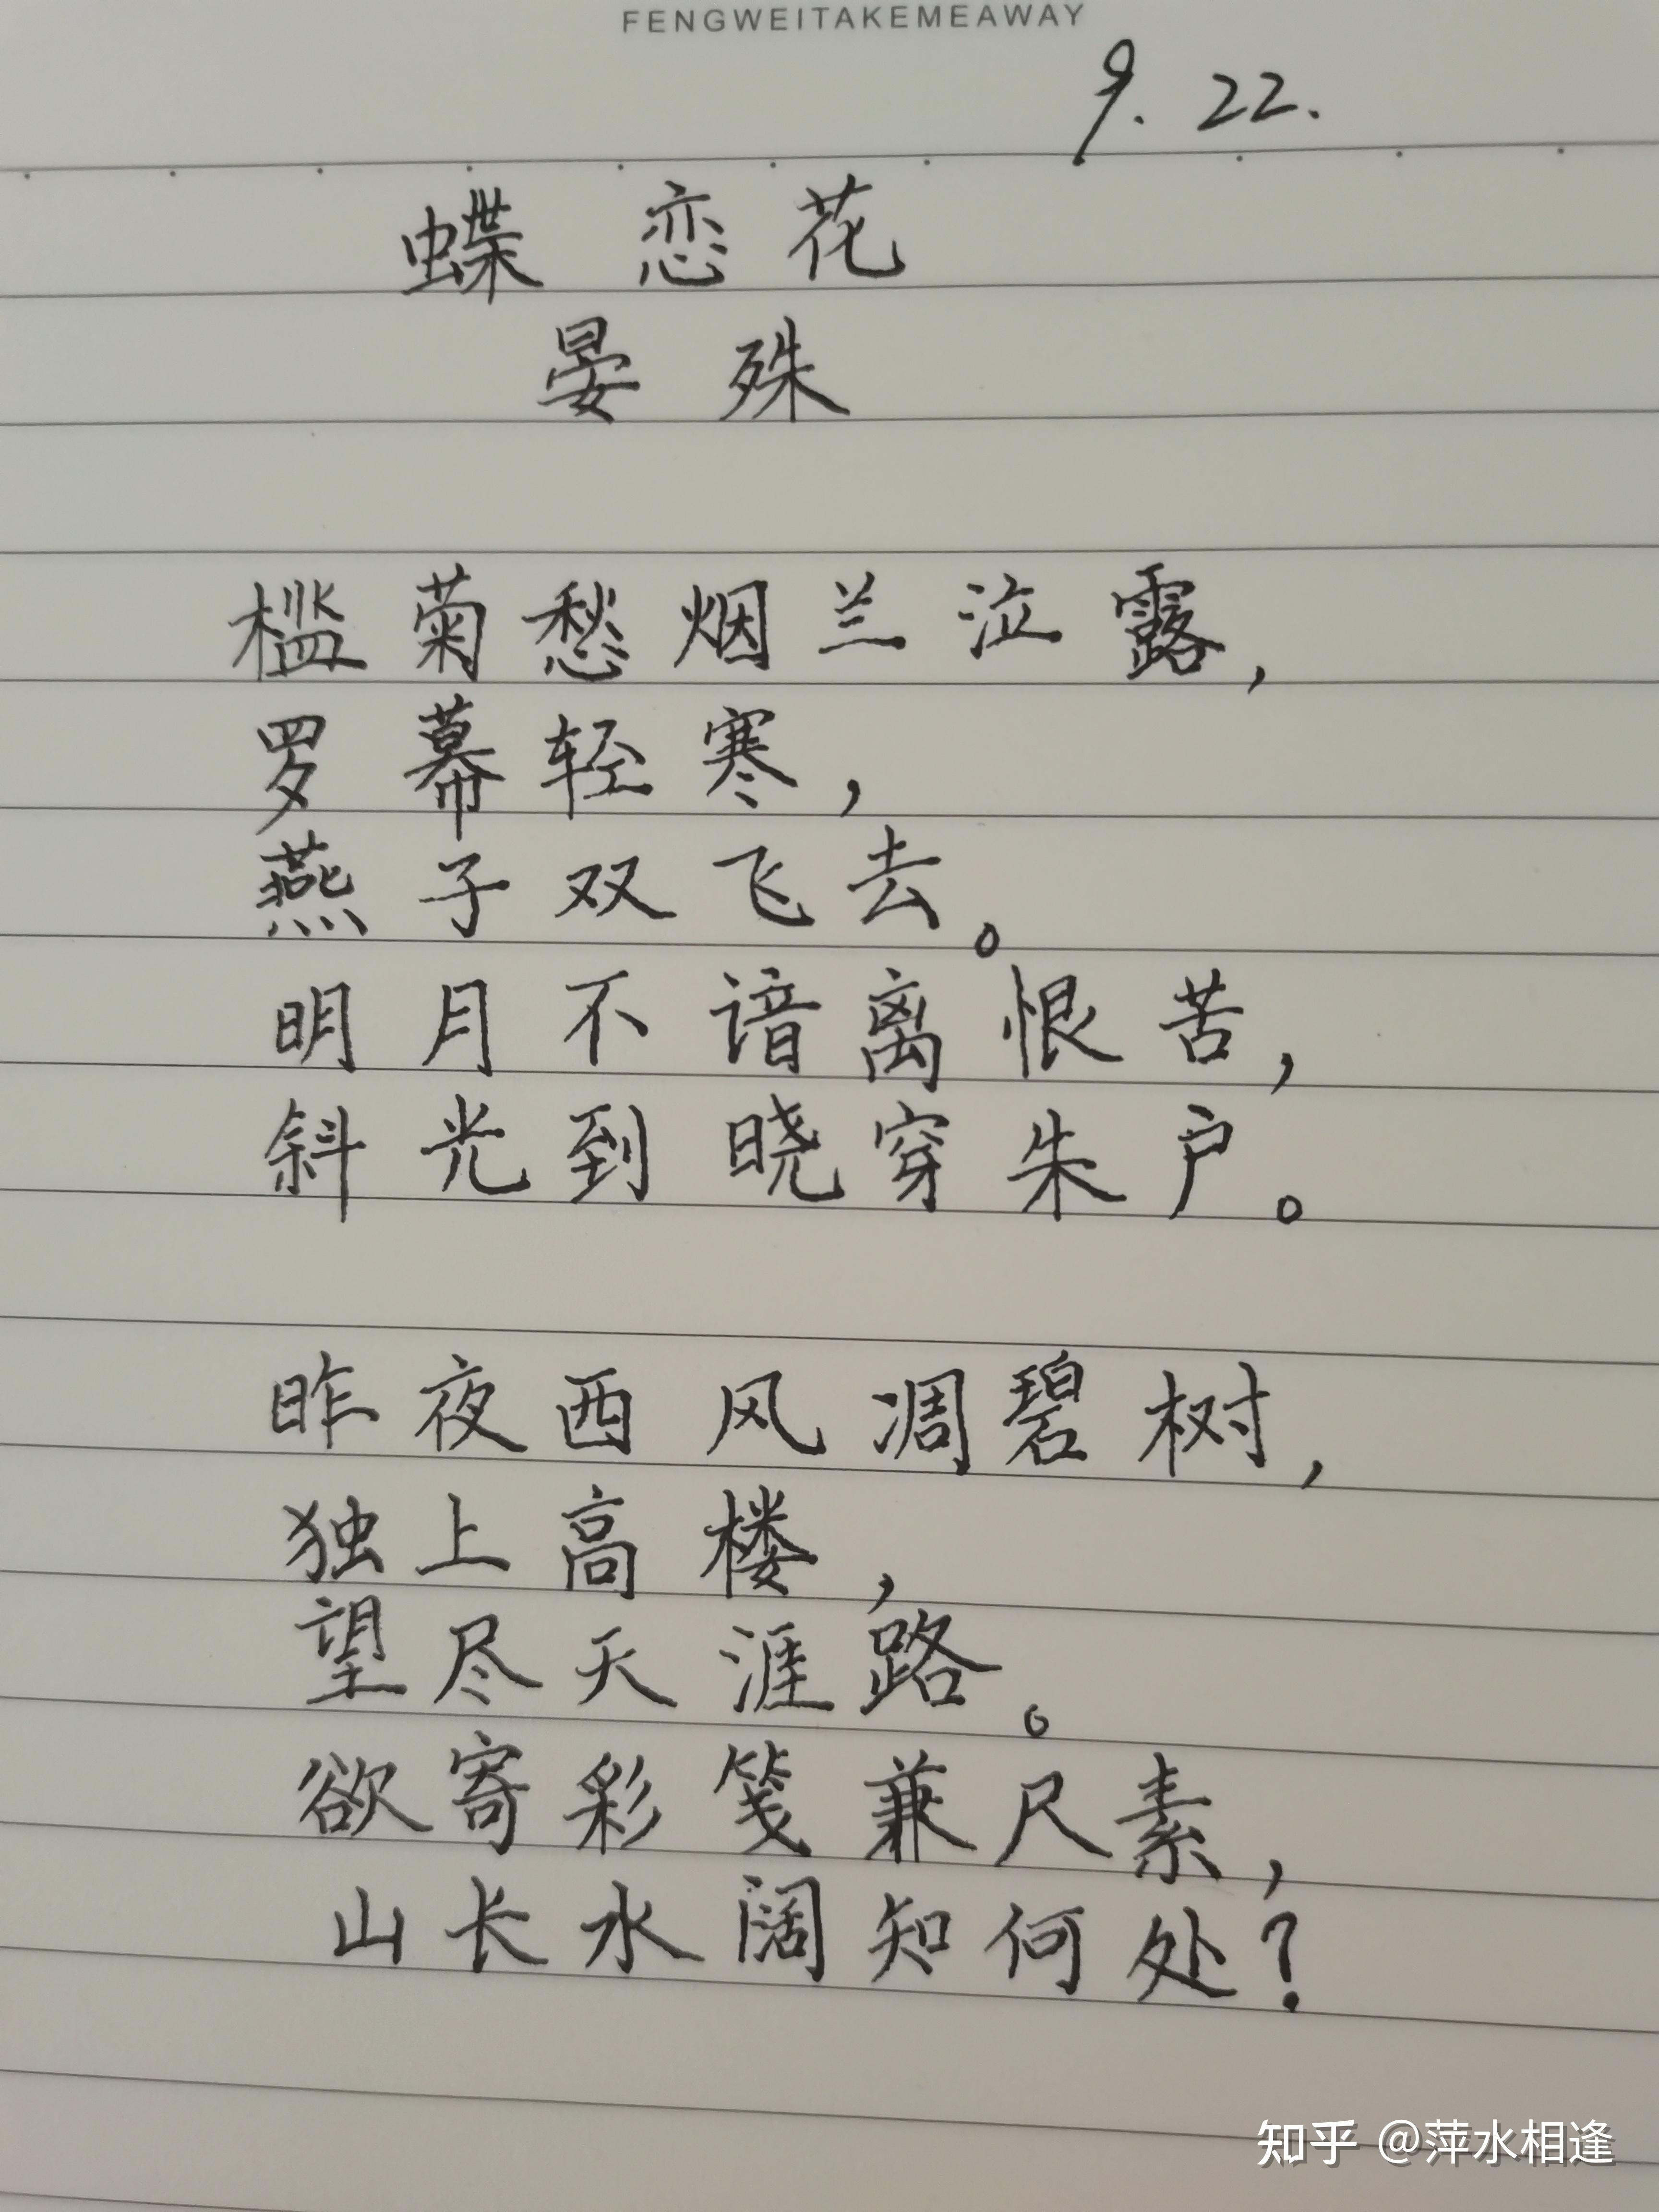 FENGWEITAKEMEAWAY
9.22.
蝶恋花
晏殊
槛菊愁烟兰泣露,
罗幕轻寒,
燕子双飞去。
明月不谙离恨苦,
斜光到晓穿朱户。
昨夜西风凋碧树,
独上高楼,
望尽天涯路。
欲寄彩笺兼尺素,
山长水阔知何处?
知乎 @萍水相逢